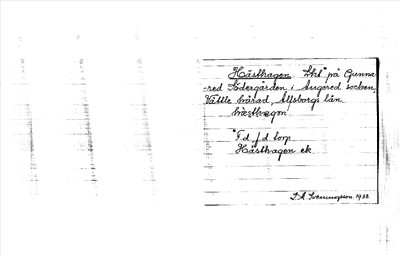 Hästhagen Lht* på Gunna-
-red Södergården i Angered socken,
Vättle härad, Älfsborgs län.
hästhagen
*F.d. f.d. torp
Hästhagen ek.
1933